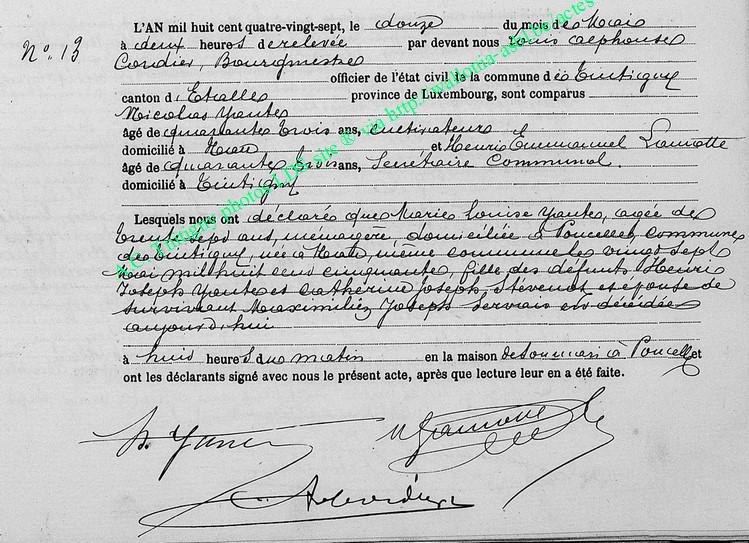 N° 13
L'AN mil huit cent quatre-vingt-sept, le douze du mois de Mai
à deux heures de relevée par devant nous Louis Alphonse
Cordier, Bourgmestre
officier de l'état civil de la commune de Tintigny
canton d'Etalle province de Luxembourg, sont comparus
Nicolas Yante
âgé de quarante trois ans, cultivateur
domicilié à et Henri Emmanuel Lamotte
âgé de quarante trois ans, Secrétaire Communal.
domicilié à Tintigny
Lesquels nous ont déclaré que Marie Louise Yante, agée de
trente sept ans, ménagère, domiciliée à Poncelle, commune
de Tintigny, née à même commune le vingt sept
mai mil huit cent cinquante, fille des défunts Henri
Joseph Yante et Catherine Joseph Stevenot et épouse de
survivant Maximilien Joseph Servais est décédée
aujourd'hui
à huit heures du matin en la maison de son mari à Poncelle et
ont les déclarants signé avec nous le présent acte, après que lecture leur en a été faite.
A.C. Tintigny photos LDS site ® via http://wallonia-asbl.be/actes